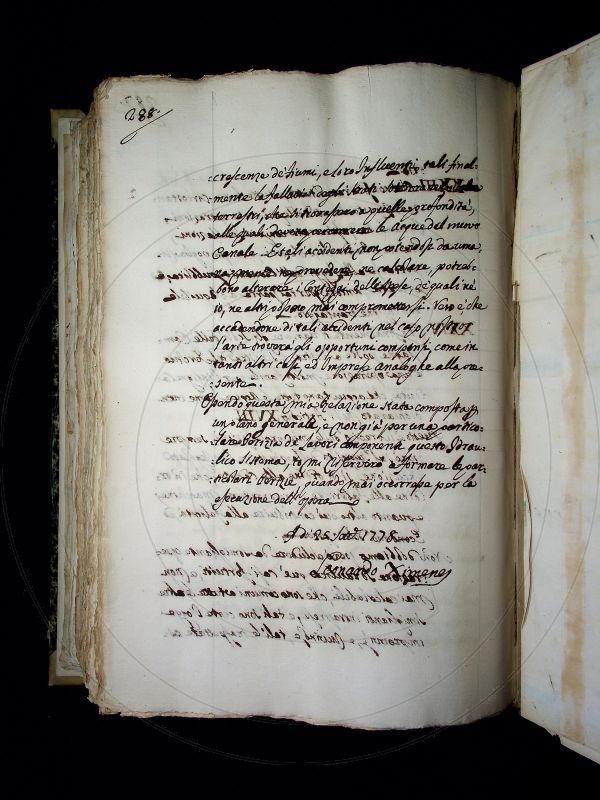 288.
crescenze de' fiumi, e loro Influenti: tali final-
mente la fallacia degli strati
terrestri, che si trovassero a quelle profondità,
alle quali devono correre le Acque del nuovo
Canale. E tali accidenti non potendosi da uma-
na mente ne provedere, ne calcolare, potreb-
bono alterare i Conteggi delle spese, de' quali nè
io, ne altri possono mai compromettersi. Vero è che
accadendone di tali accidenti, nel caso
l'arte troverà gli opportuni compensi, come in
tanti altri casi ed Imprese analoghe alla pre-
sente.
Essendo questa mia Relazione stata composta p
un piano generale, e non già per una partico-
lare Perizia de' Lavori componenti questo Idrau-
lico sistema, io mi riserverò a formare le par-
ticolari Perizie, quando mai occorresse per la
esecuzione dell'opera
A dì 25. 1778.
Leonardo Ximenes